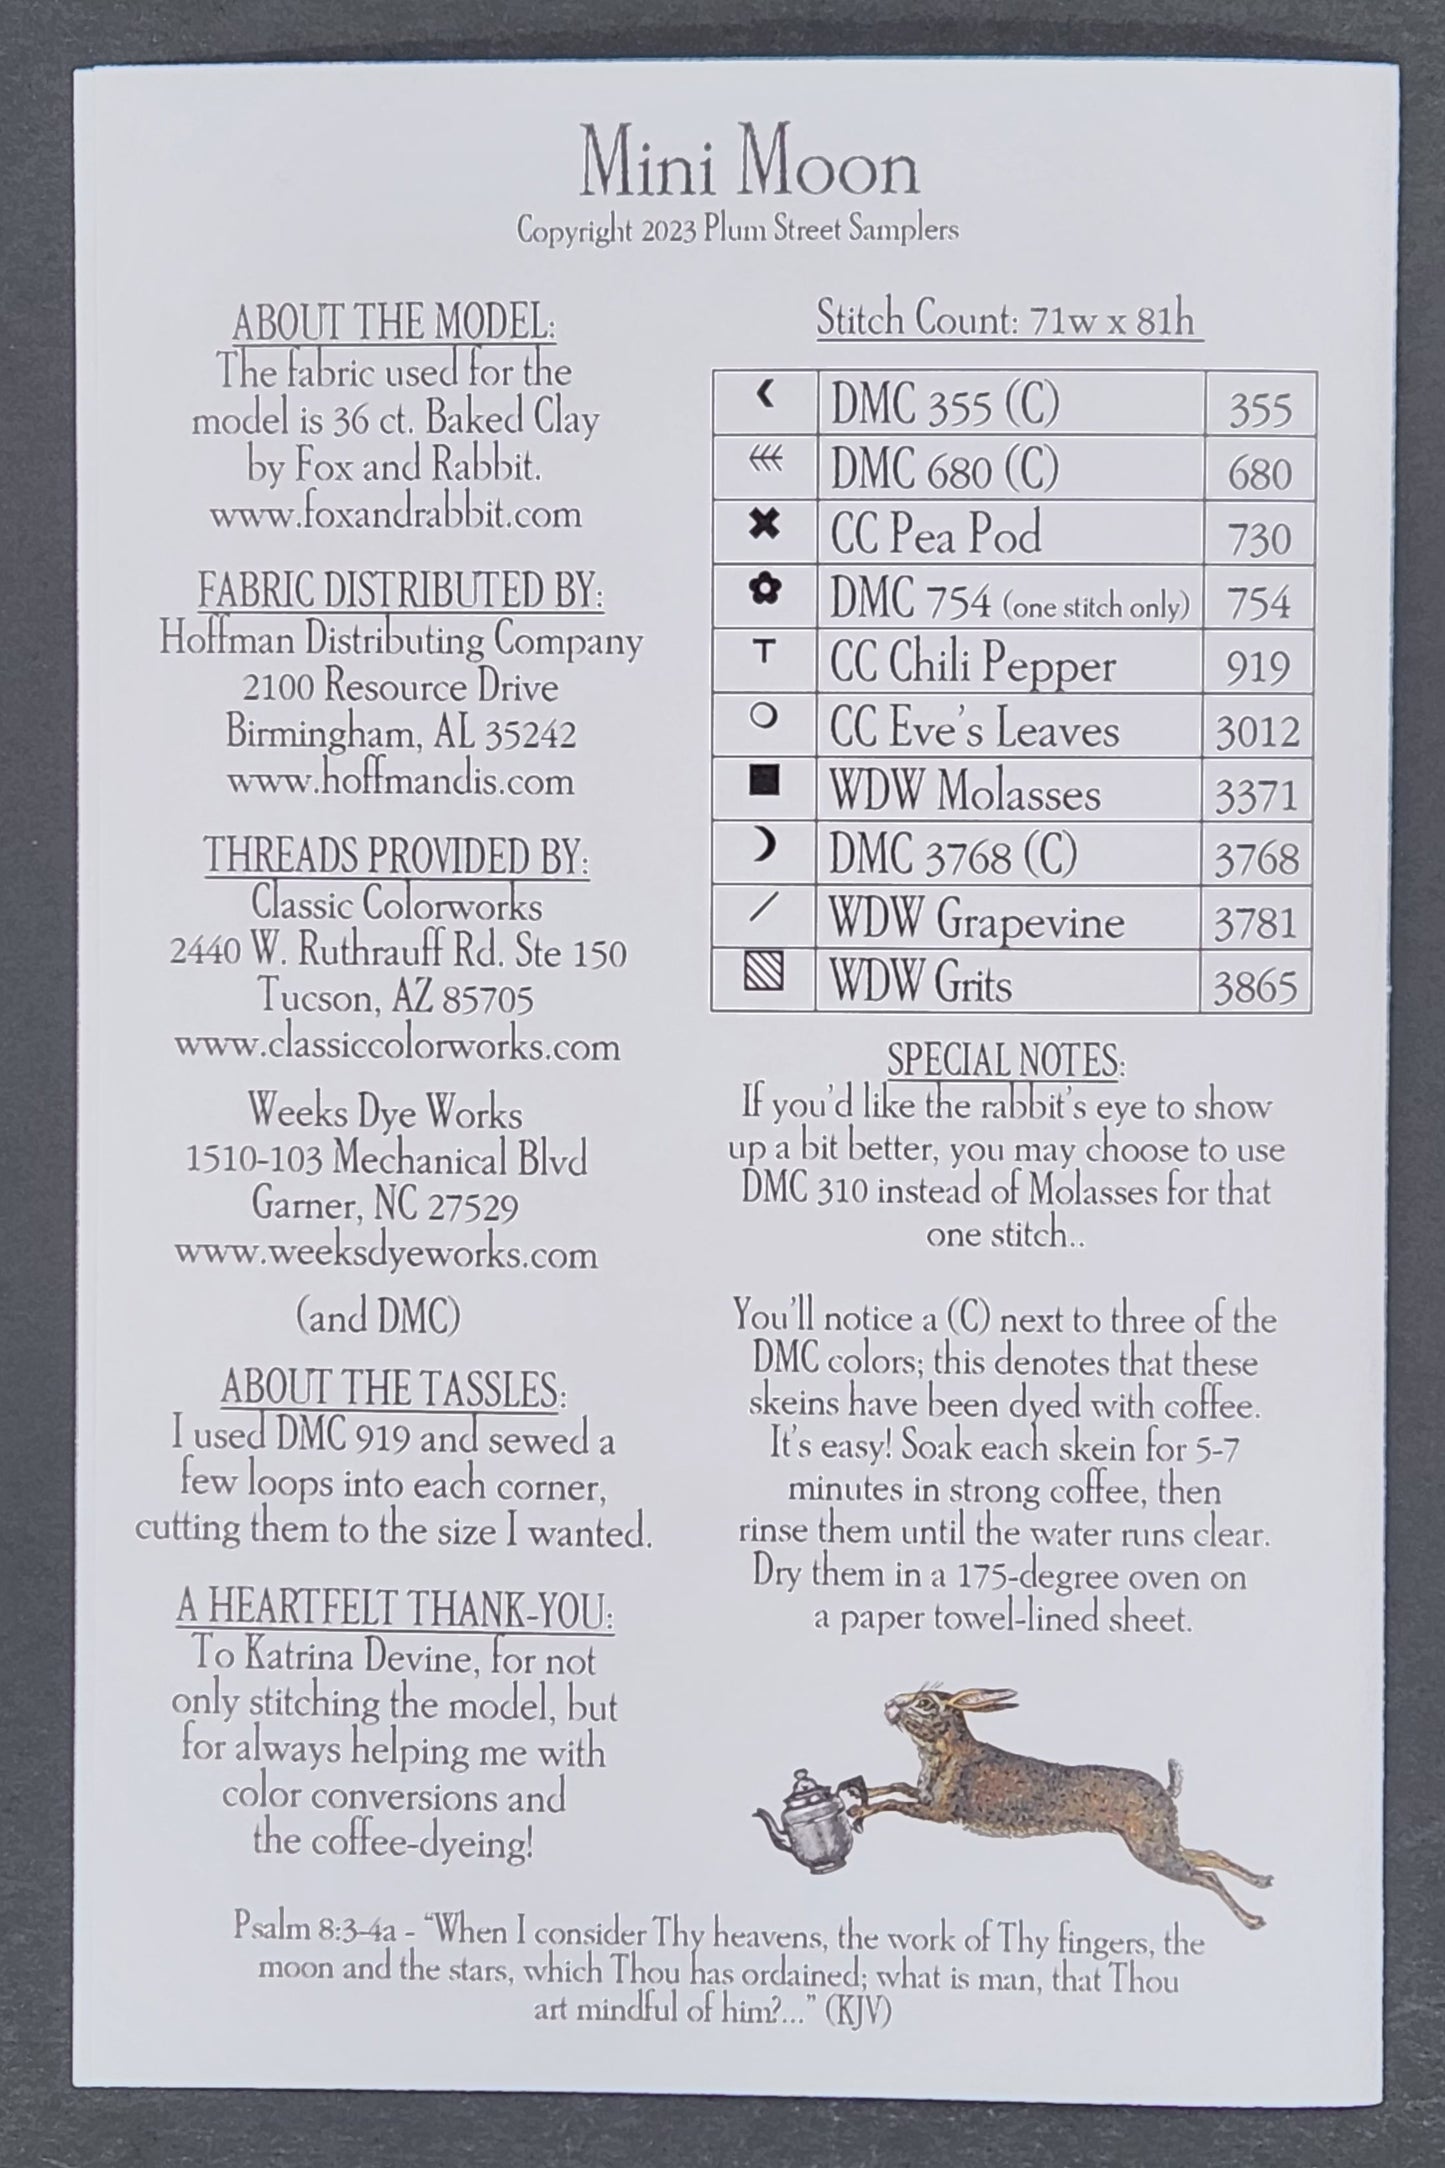 Mini Moon
Copyright 2023 Plum Street Samplers
ABOUT THE MODEL:
The fabric used for the
model is 36 ct. Baked Clay
by Fox and Rabbit.
www.foxandrabbit.com
FABRIC DISTRIBUTED BY:
Hoffman Distributing Company
2100 Resource Drive
Birmingham, AL 35242
www.hoffmandis.com
THREADS PROVIDED BY:
Classic Colorworks
2440 W. Ruthrauff Rd. Ste 150
Tucson, AZ 85705
www.classiccolorworks.com
Weeks Dye Works
1510-103 Mechanical Blvd
Garner, NC 27529
www.weeksdyeworks.com
(and DMC)
ABOUT THE TASSLES:
I used DMC 919 and sewed a
few loops into each corner,
cutting them to the size I wanted.
A HEARTFELT THANK-YOU:
To Katrina Devine, for not
only stitching the model, but
for always helping me with
color conversions and
the coffee-dyeing!
Stitch Count: 71w x 81h
DMC 355 (C) 355
DMC 680 (C) 680
CC Pea Pod 730
DMC 754 (one stitch only) 754
CC Chili Pepper 919
CC Eve's Leaves 3012
WDW Molasses 3371
DMC 3768 (C) 3768
WDW Grapevine 3781
WDW Grits 3865
SPECIAL NOTES:
If you'd like the rabbit's eye to show
up a bit better, you may choose to use
DMC 310 instead of Molasses for that
one stitch..
You'll notice a (C) next to three of the
DMC colors; this denotes that these
skeins have been dyed with coffee.
It's easy! Soak each skein for 5-7
minutes in strong coffee, then
rinse them until the water runs clear.
Dry them in a 175-degree oven on
a paper towel-lined sheet.
Psalm 8:3-4a - "When I consider Thy heavens, the work of Thy fingers, the
moon and the stars, which Thou has ordained; what is man, that Thou
art mindful of him?..." (KJV)